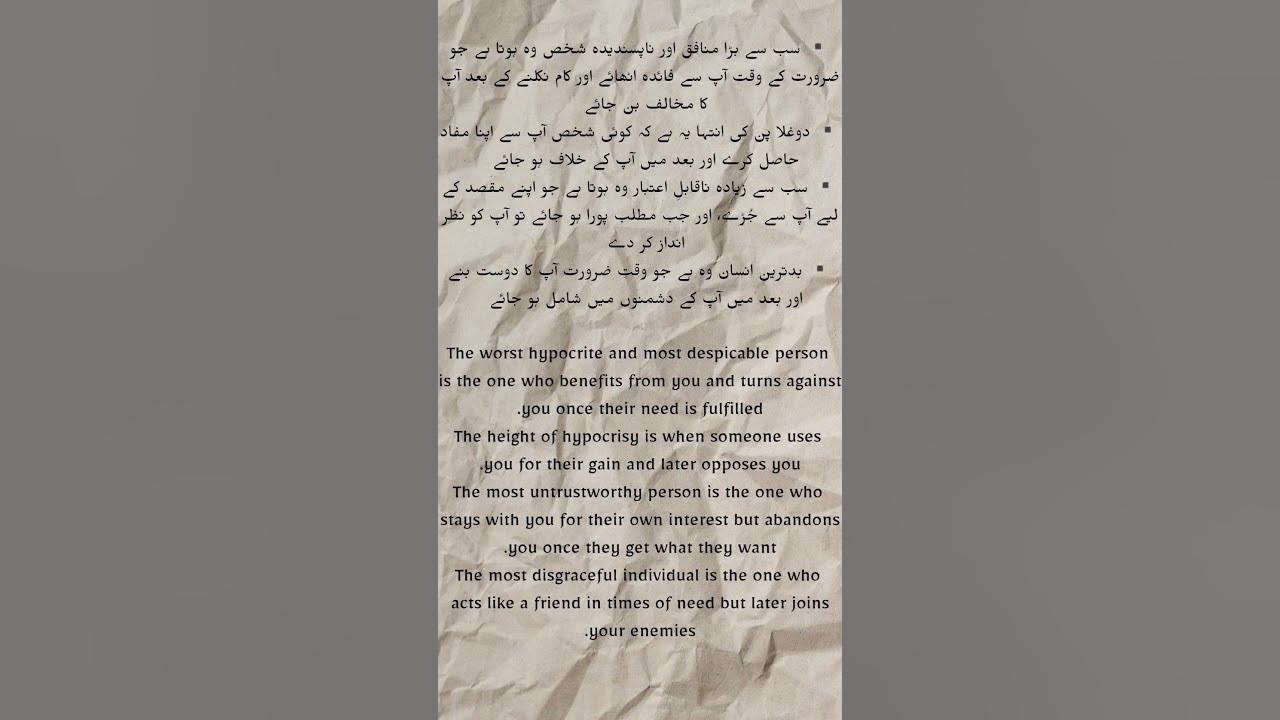 ▪ سب سے بڑا منافق اور ناپسندیدہ شخص وہ ہوتا ہے جو
ضرورت کے وقت آپ سے فائدہ اٹھائے اور کام نکلنے کے بعد آپ
کا مخالف بن جائے
▪ دوغلا پن کی انتہا یہ ہے کہ کوئی شخص آپ سے اپنا مفاد
حاصل کرے اور بعد میں آپ کے خلاف ہو جائے
▪ سب سے زیادہ ناقابلِ اعتبار وہ ہوتا ہے جو اپنے مقصد کے
لیے آپ سے جُڑے، اور جب مطلب پورا ہو جائے تو آپ کو نظر
انداز کر دے
▪ بدترین انسان وہ ہے جو وقتِ ضرورت آپ کا دوست بنے
اور بعد میں آپ کے دشمنوں میں شامل ہو جائے
The worst hypocrite and most despicable person
is the one who benefits from you and turns against
.you once their need is fulfilled
The height of hypocrisy is when someone uses
.you for their gain and later opposes you
The most untrustworthy person is the one who
stays with you for their own interest but abandons
.you once they get what they want
The most disgraceful individual is the one who
acts like a friend in times of need but later joins
.your enemies